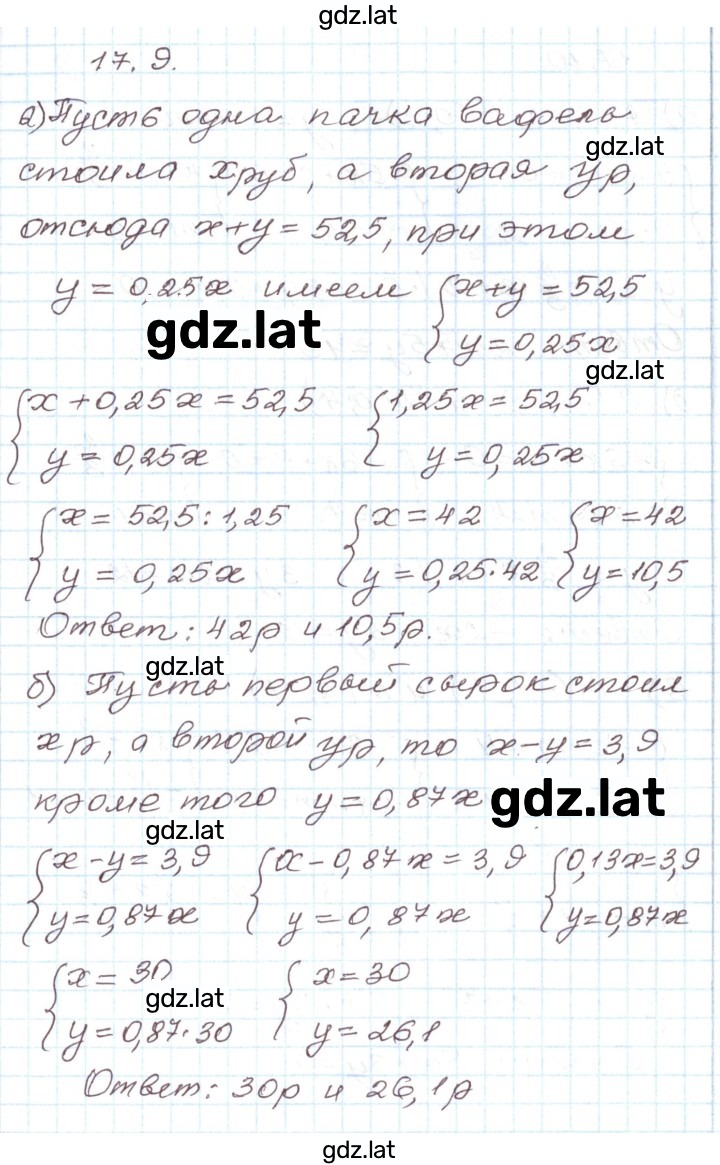 gdz.lat
17. 9.
а) Пусть одна пачка вафель
gdz.lat
стоила x руб, а вторая y р,
отсюда x+y = 52,5, при этом
y = 0.25x имеем { x+y = 52,5
gdz.lat
y = 0,25x
gdz.lat
{ x + 0,25x = 52,5 { 1,25x = 52,5
y = 0,25x y = 0,25x
{ x = 52,5 : 1,25 { x = 42 { x = 42
y = 0,25x y = 0,25·42 y = 10,5
Ответ: 42р и 10,5р.
gdz.lat
б) Пусть первый сырок стоил
x р, а второй y р, то x-y = 3,9
кроме того y = 0,87x
gdz.lat
gdz.lat
{ x - y = 3,9 { x - 0,87x = 3,9 { 0,13x = 3,9
y = 0,87x y = 0,87x y = 0,87x
{ x = 30 { x = 30
gdz.lat
y = 0,87·30 y = 26,1
Ответ: 30р и 26,1р
gdz.lat